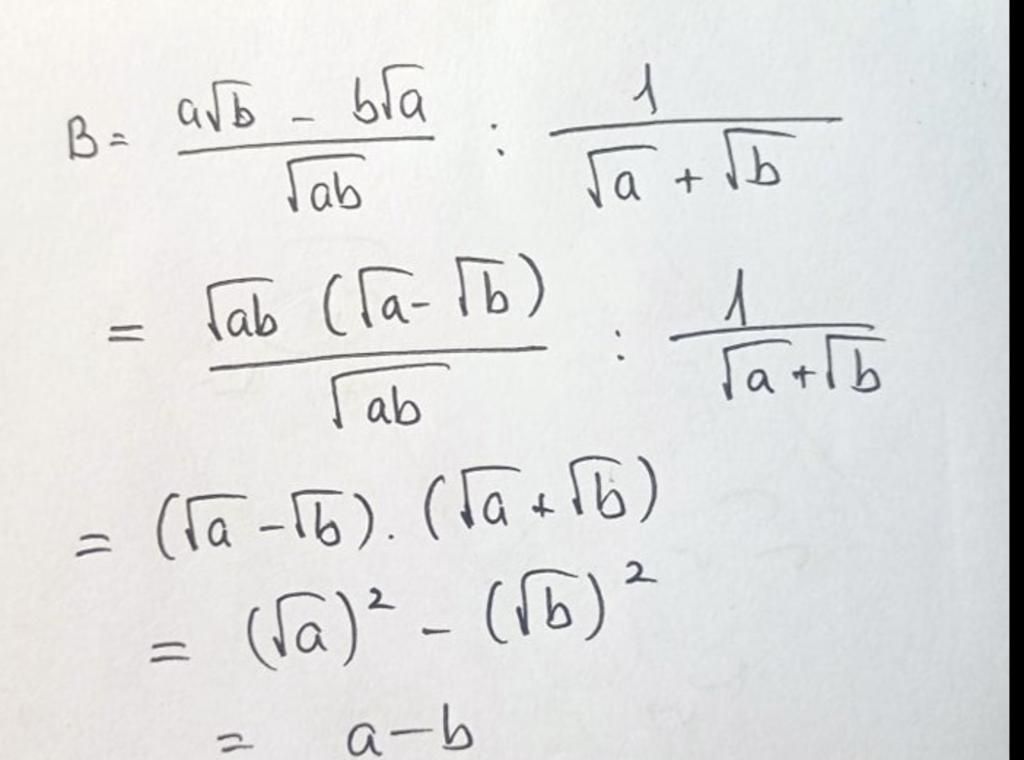 B = (a√b - b√a)/√ab : 1/(√a + √b)
= √ab (√a - √b)/√ab : 1/(√a + √b)
= (√a - √b) . (√a + √b)
= (√a)² - (√b)²
= a - b